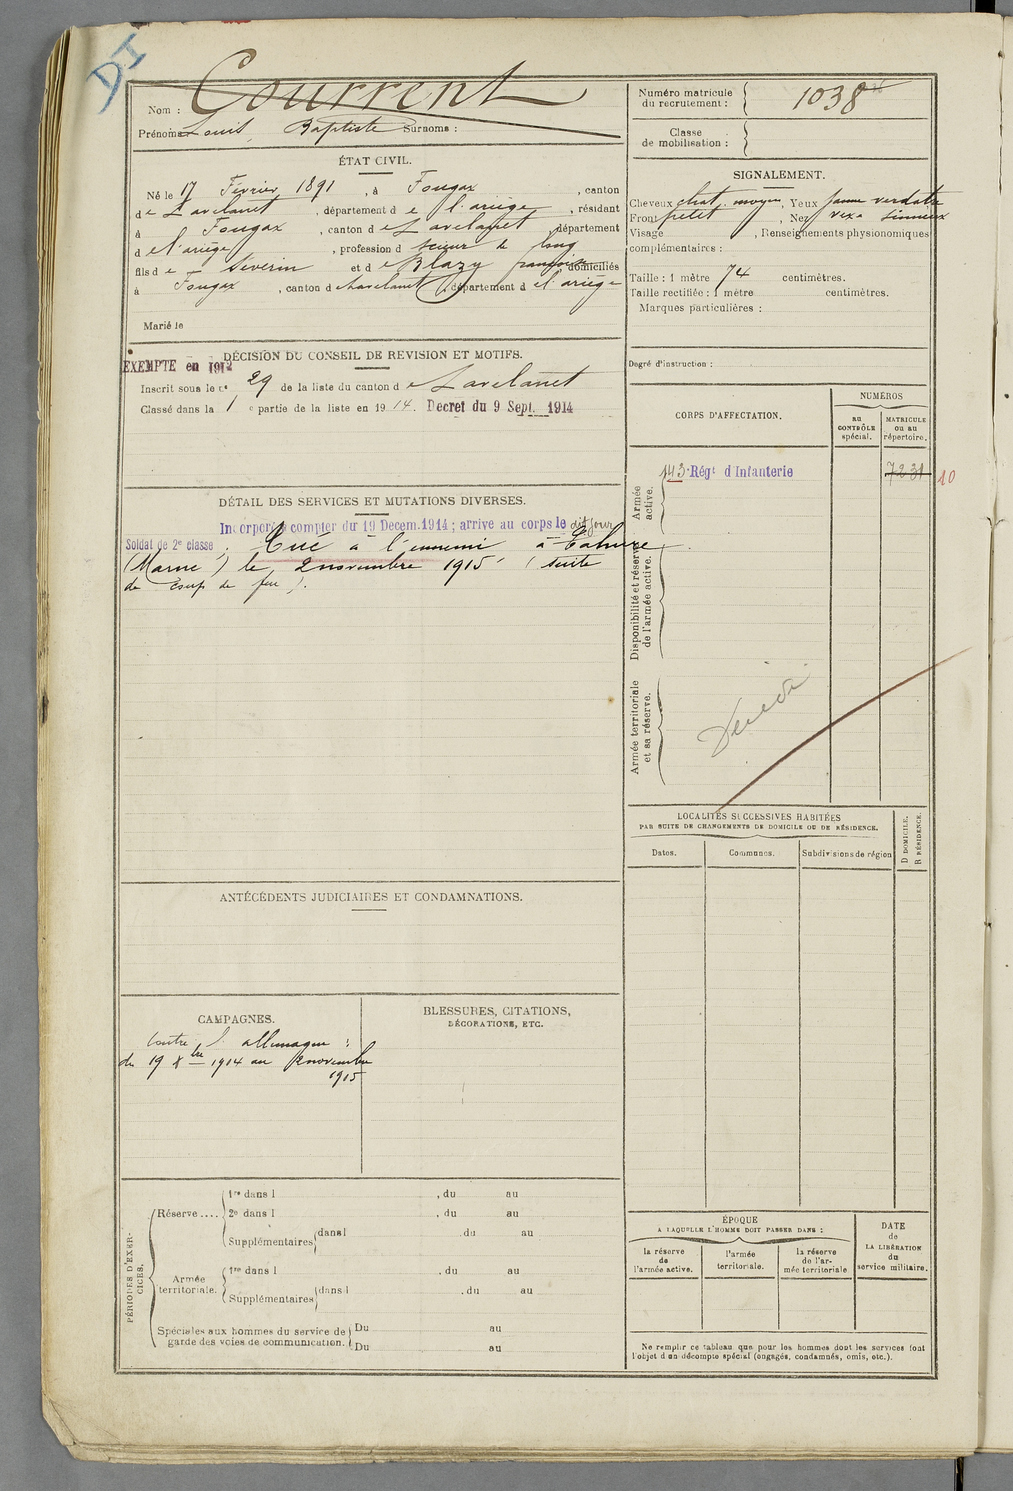 DI
Nom : Courrent
Prénoms : Louis Baptiste Surnoms :
Numéro matricule du recrutement : 1038
Classe de mobilisation :
ÉTAT CIVIL.
Né le 17 Février 1891, à Fougax, canton
de Lavelanet, département de l'ariège, résidant
à Fougax, canton de Lavelanet, département
de l'ariège, profession de scieur de long
fils de Séverin et de Blazy françoise, domiciliés
à Fougax, canton de Lavelanet, département de l'ariège
Marié le
SIGNALEMENT.
Cheveux chat. moyen, Yeux jaune verdatre
Front petit, Nez vexe sinueux
Visage , Renseignements physionomiques
complémentaires :
Taille : 1 mètre 74 centimètres.
Taille rectifiée : 1 mètre centimètres.
Marques particulières :
Degré d'instruction :
DÉCISION DU CONSEIL DE REVISION ET MOTIFS.
EXEMPTE en 1912
Inscrit sous le n° 29 de la liste du canton de Lavelanet
Classé dans la 1 e partie de la liste en 1914. Decret du 9 Sept. 1914
DÉTAIL DES SERVICES ET MUTATIONS DIVERSES.
Incorporé à compter du 19 Decem. 1914 ; arrivé au corps le dit jour
Soldat de 2e classe. Tué à l'ennemi à Tahure
(Marne) le 2 novembre 1915 (suite
de coup de feu).
CORPS D'AFFECTATION.
NUMÉROS
au CONTRÔLE spécial.
MATRICULE ou au répertoire.
Armée active.
143 Régt d'Infanterie 7231 10
Disponibilité et réserve de l'armée active.
Armée territoriale et sa réserve.
Décédé
LOCALITÉS SUCCESSIVES HABITÉES
PAR SUITE DE CHANGEMENTS DE DOMICILE OU DE RÉSIDENCE.
Dates.
Communes.
Subdivisions de région
D DOMICILE.
R RÉSIDENCE.
ANTÉCÉDENTS JUDICIAIRES ET CONDAMNATIONS.
CAMPAGNES.
Contre l'allemagne :
du 19 Xbre 1914 au 2 novembre
1915
BLESSURES, CITATIONS,
DÉCORATIONS, ETC.
PÉRIODES D'EXERCICES.
Réserve....
1re dans l , du au
2e dans l , du au
Supplémentaires dans l , du au
Armée territoriale.
1re dans l , du au
Supplémentaires dans l , du au
Spéciales aux hommes du service de garde des voies de communication.
Du au
Du au
ÉPOQUE
A LAQUELLE L'HOMME DOIT PASSER DANS :
la réserve de l'armée active.
l'armée territoriale.
la réserve de l'armée territoriale
DATE de LA LIBÉRATION du service militaire.
Ne remplir ce tableau que pour les hommes dont les services font
l'objet d'un décompte spécial (engagés, condamnés, omis, etc.).